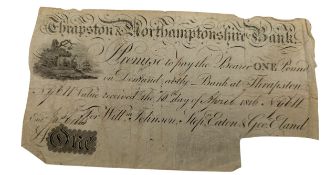 Thrapston & Northamptonshire Bank
I Promise to pay the Bearer ONE Pound
on Demand, at the Bank at Thrapston
Value received the 10th day of 1816
For Willm Johnson, Step. Eaton & Geo. Eland
One